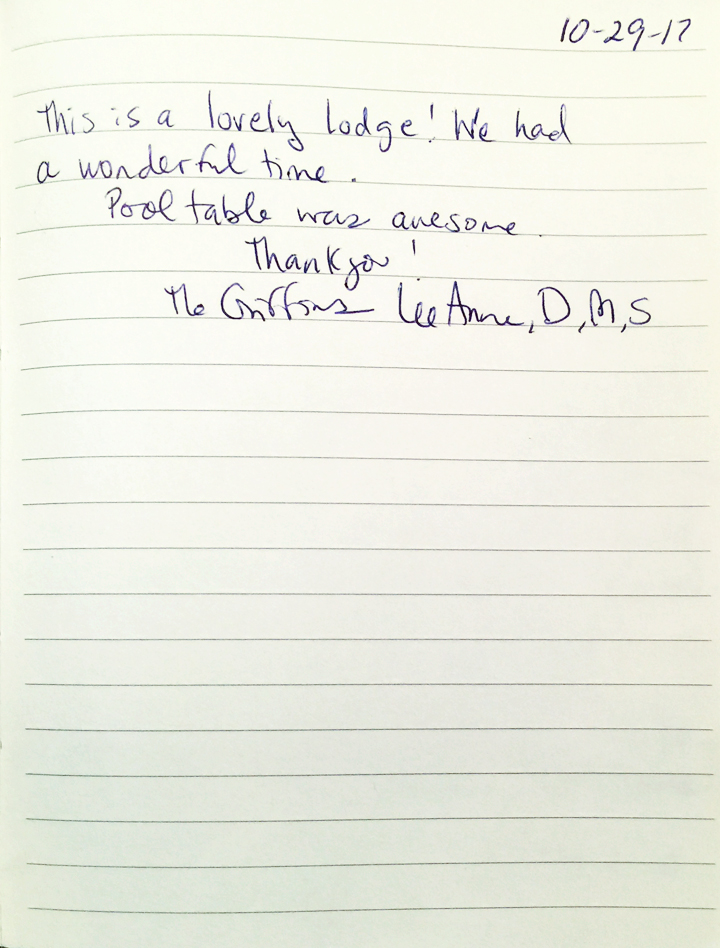 10-29-17
This is a lovely lodge! We had
a wonderful time.
Pool table was awesome.
Thank you!
The Griffins LeeAnne, D, M, S